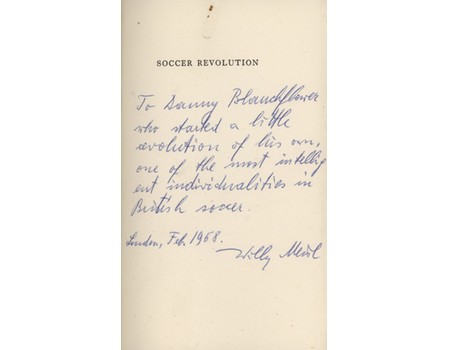 SOCCER REVOLUTION
To Danny Blanchflower
who started a little
revolution of his own,
one of the most intellig
ent individualities in
British soccer.
London, Feb. 1968.
Willy Meisl